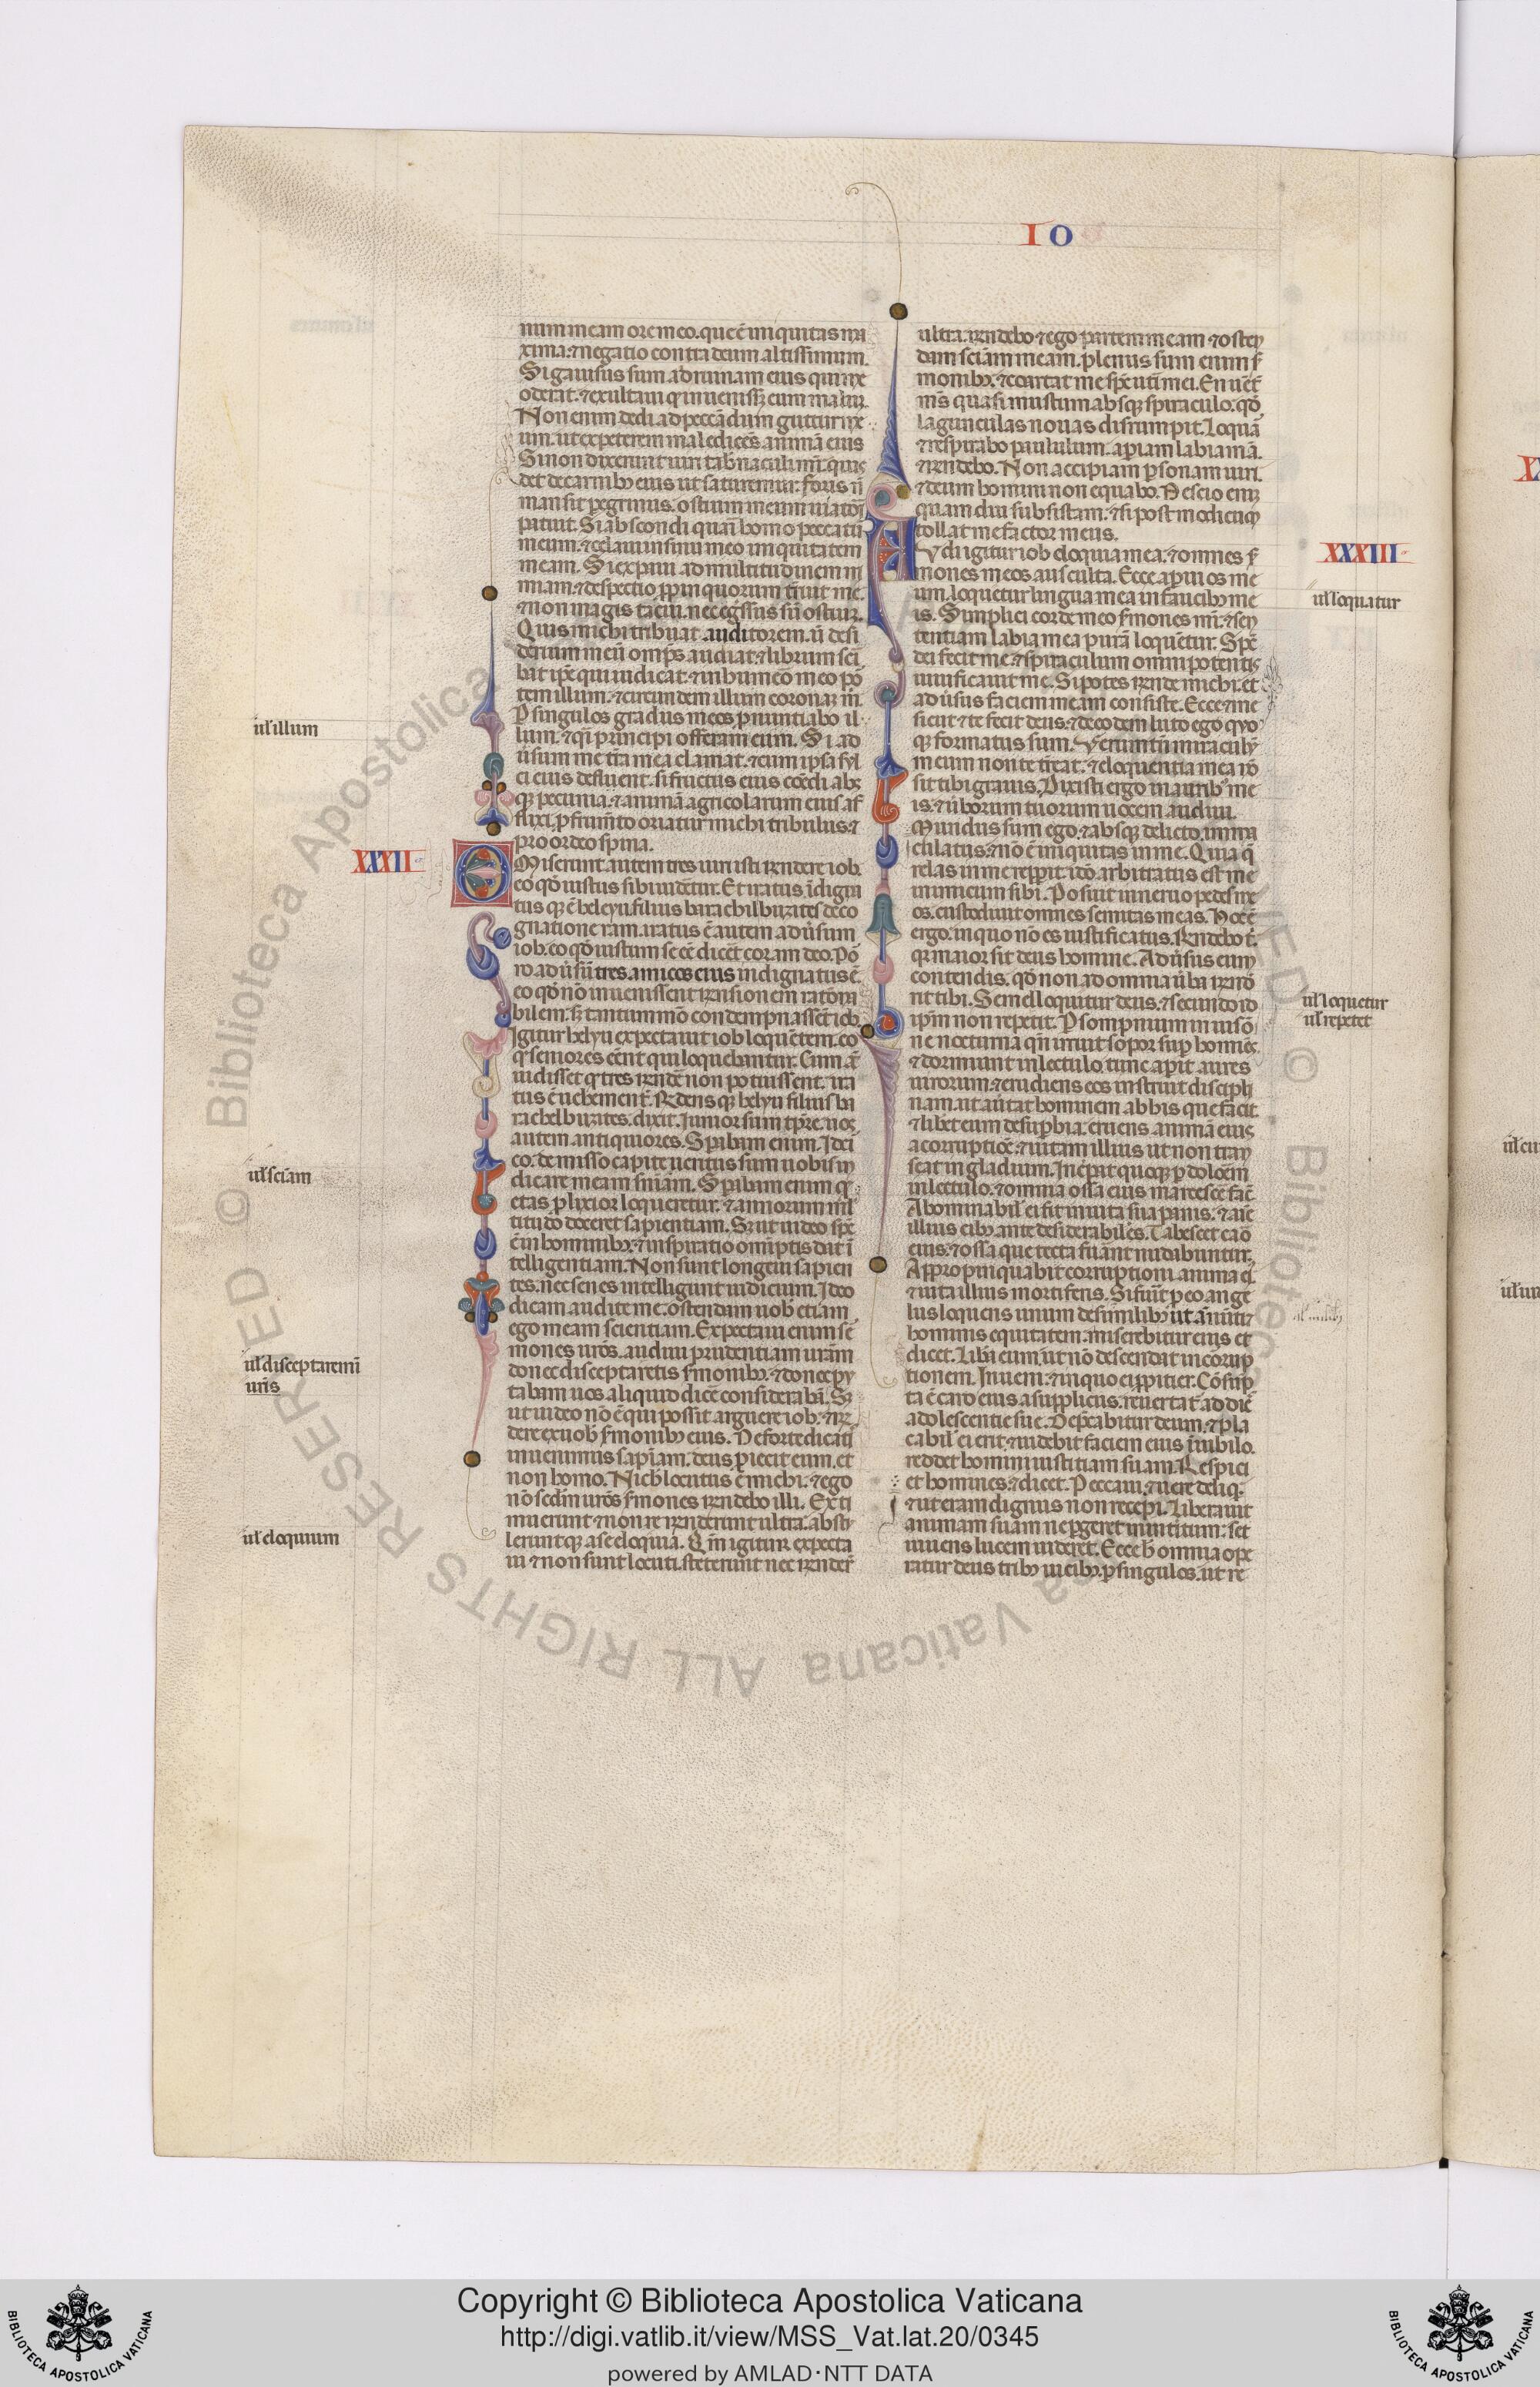 IO
num meam ore meo. que ē iniquitas ma
xima. ⁊ negatio contra deum altissimum.
Si gauisus sum ad ruinam eius qui me
oderat. ⁊ exultaui ꝙ inuenissꝫ eum malum.
Non enim dedi ad peccādum guttur me
um. ut expeterem maledicēs animā eius
Si non dixerunt uiri tabnaculi mī. quis
det de carnibꝫ eius ut saturemur. foris nō
mansit pegrinus. ostium meum uiatori
patuit. Si abscondi quasi homo peccatū
meum. ⁊ celaui in sinu meo iniquitatem
meam. Si expaui ad multitudinem ni
miam. ⁊ despectio ppinquorum truit me.
⁊ non magis tacui. nec egssus sū ostium.
Quis michi tribuat auditorem. ut desi
derium meū omps audiat. ⁊ librum sci
bat ipe qui iudicat. ⁊ in humeo meo por
tem illum. ⁊ circundem illum coronam m.
P singulos gradus meos pnuntiabo il
lum. ⁊ qsi principi offeram eum. Si ad
usum me tra mea clamat. ⁊ cum ipsa syl
ci eius defluent. si fructus eius comedi abs
qꝫ pecunia. ⁊ animā agricolarum eius af
flixi. p frumto oriatur michi tribulus. ⁊
pro ordeo spina.
XXXII
Omiserunt autem tres uiri isti rndere iob.
eo qd iustus sibi uidetur. Et iratus indigna
tus qꝫ ē helyu filius barachil buzites de co
gnatione ram. iratus ē autem aduersum
iob. eo qd iustum se eē diceret coram deo. Por
ro adusū tres amicos eius indignatus ē.
eo qd nō inuenissent rnsionem rationa
bilem. sꝫ tantummō condempnassent iob
Igitur helyu expectauit iob loquētem. eo
ꝙ seniores eent qui loquebantur. Cum aū
uidisset ꝙ tres rndē non potuissent. ira
tus ē uehement. Rndens qꝫ helyu filius ba
rachel buzites. dixit. Iunior sum tpre. uos
autem antiquiores. Spibam enim. Idci
co. demisso capite ueritus sum uobis in
dicare meam sniam. Spabam enim ꝙ
etas plixior loqueretur. ⁊ annorum mul
titudo doceret sapientiam. Sꝫ ut uideo spc
ē in hominibꝫ. ⁊ inspiratio omptis dat in
telligentiam. Non sunt longeui sapien
tes. nec senes intelligunt iudicium. Ideo
dicam audite me. ostendam uob etiam
ego meam scientiam. Expectaui enim ser
mones uros. audiui prudentiam uram
donec disceptaretis smonibꝫ. ⁊ donec pu
tabam uos aliquid dice considerabā. Sꝫ
ut uideo nō ē qui possit arguere iob. ⁊ rn
dere ex uob smonibꝫ eius. Ne forte dicatis
inuenimus sapiam. deus piecit eum. et
non homo. Nich locutus ē michi. ⁊ ego
nō scdm uros smones rndebo illi. Exti
muerunt ⁊ non rnderunt ultra. abstu
leruntqꝫ a se eloquia. Qm igitur expecta
ui ⁊ non sunt locuti. steterunt nec rnder
ul illum
ul sciam
ul disceptaremi
uris
ul eloquium
ultra. rndebo ⁊ ego partem meam. ⁊ osten
dam sciam meam. plenus sum enim s
monibꝫ. ⁊ coartat me spc uteri mei. En uent
ms quasi mustum absqꝫ spiraculo. qd
lagunculas nouas disrumpit. Loquar
⁊ respirabo paululum. apiam labia mā.
⁊ rndebo. Non accipiam psonam uiri.
⁊ deum homini non equabo. Nescio enim
quamdiu subsistam. ⁊ si post modicum
tollat me factor meus.
XXXIII
Audi igitur iob eloquia mea. ⁊ omnes s
mones meos ausculta. Ecce aperui os me
um. loquetur lingua mea in faucibꝫ me
is. Simplici corde meo smones mi. ⁊ sen
tentiam labia mea purā loquetur. Spc
dei fecit me. ⁊ spiraculum omnipotentis
uiuificauit me. Si potes rnde michi. et
adusus faciem meam consiste. Ecce ⁊ me
sicut ⁊ te fecit deus. ⁊ de eodem luto ego quo
qꝫ formatus sum. Verumtn miraculum
meum non te treat. ⁊ eloquentia mea nō
sit tibi grauis. Dixisti ergo in auribꝫ me
is. ⁊ uerborum tuorum uocem audiui.
Mundus sum ego. ⁊ absqꝫ delicto. imma
culatus. ⁊ nō ē iniquitas in me. Quia q
relas in me repperit. ido arbitratus est me
inimicum sibi. Posuit in neruo pedes me
os. custodiuit omnes semitas meas. Hoc ē
ergo. in quo nō es iustificatus. Rndebo t.
qꝫ maior sit deus homine. Adusus eum
contendis. qd non ad omnia uba rnde
rit tibi. Semel loquitur deus. ⁊ secundo id
ipm non repetit. P sompnium in uisio
ne nocturna qn irruit sopor sup homies.
⁊ dormiunt in lectulo. tunc apit aures
uirorum. ⁊ erudiens eos instruit discipli
nam. ut auertat hominem ab his que facit
⁊ libet eum de supbia. eruens animā eius
a corruptione. ⁊ uitam illius ut non tran
seat in gladium. Increpat quoqꝫ p dolorem
in lectulo. ⁊ omnia ossa eius marcesce fac.
Abominabil ei fit in uita sua panis. ⁊ aīe
illius cibꝫ ante desiderabiles. Tabescet caro
eius. ⁊ ossa que tecta fuerant nudabuntur.
Appropinquabit corruptioni anima ei
⁊ uita illius mortiferis. Si fuerit p eo ange
lus loquens unum de similibꝫ ut annunti
hominis equitatem. miserebitur eius et
dicet. Libera eum. ut nō descendat in corrup
tionem. Inueni. ⁊ in quo ei ppitier. Consup
ta ē caro eius a suppliciis. reuertatur ad dies
adolescentie sue. Deprecabitur deum. ⁊ pla
cabil ei erit. ⁊ uidebit faciem eius in iubilo.
reddet homini iustitiam suam. Respici
et homines. ⁊ dicet. Peccaui. ⁊ uere deliq.
⁊ ut eram dignus non recepi. Liberauit
animam suam ne pgeret in intitum. set
uiuens lucem uideret. Ecce h omnia ope
ratur deus tribꝫ uicibꝫ. p singulos. ut re
ul loquatur
ul loquetur
ul repetet
Copyright © Biblioteca Apostolica Vaticana
http://digi.vatlib.it/view/MSS_Vat.lat.20/0345
powered by AMLAD·NTT DATA
BIBLIOTECA APOSTOLICA VATICANA
BIBLIOTECA APOSTOLICA VATICANA
Biblioteca Apostolica Vaticana ALL RIGHTS RESERVED ©